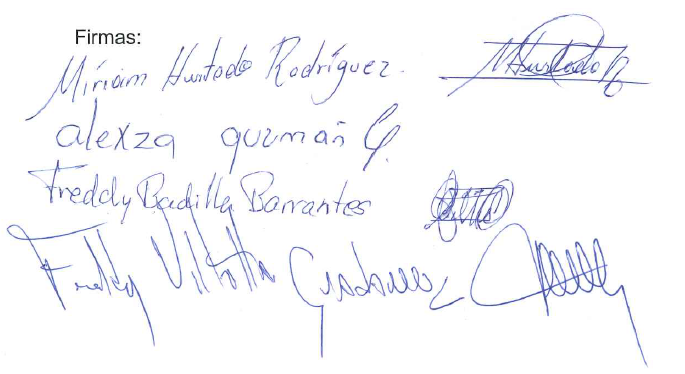 Firmas:
Miriam Hurtado Rodríguez. MHurtado R
alexza guzmán G.
Freddy Badilla Barrantes
Freddy